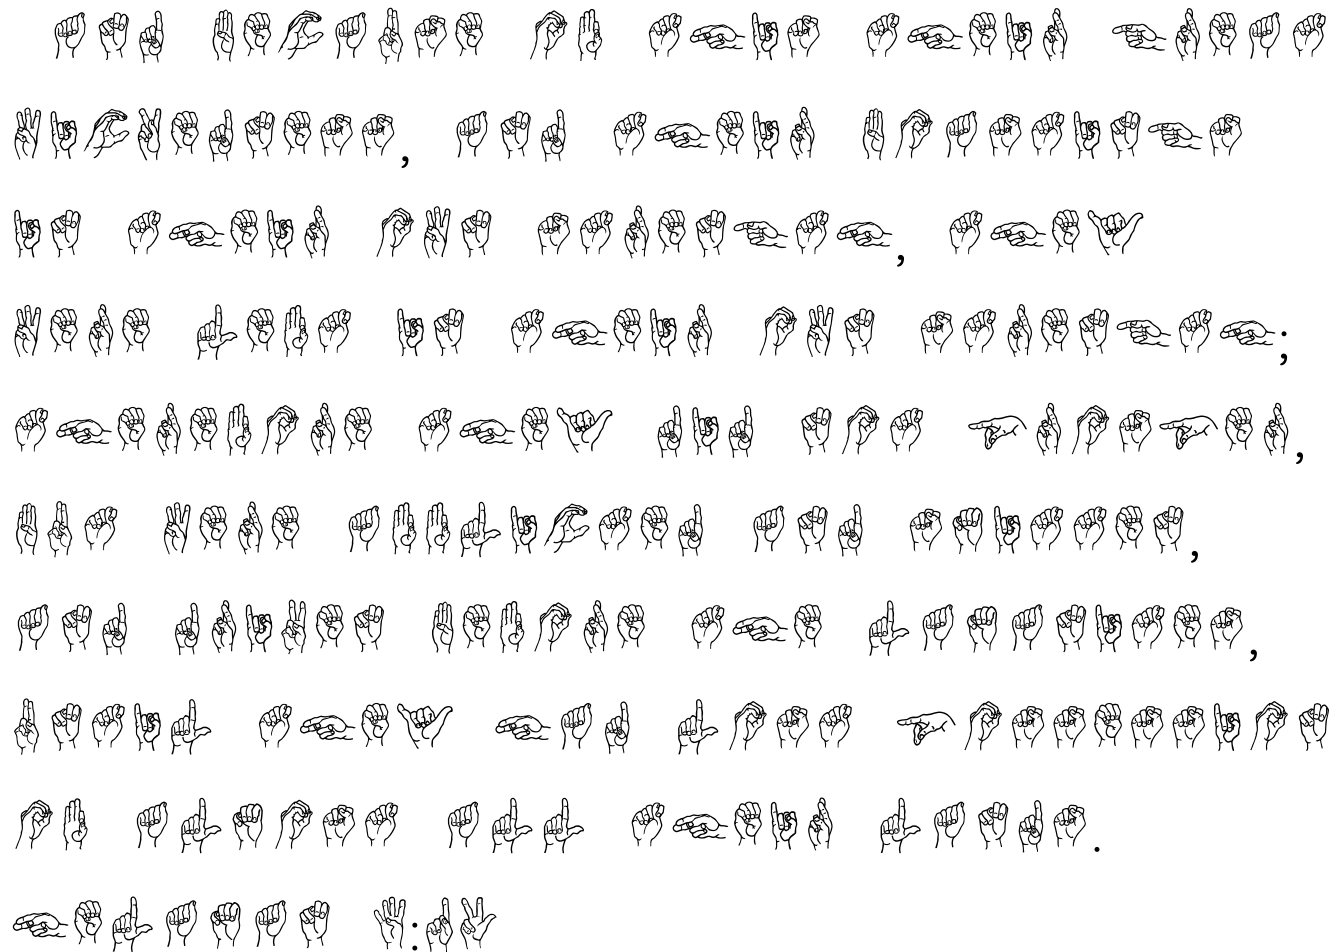 AND BECAUSE OF THIS THEIR GREAT
WICKEDNESS, AND THEIR BOASTINGS
IN THEIR OWN STRENGTH, THEY
WERE LEFT IN THEIR OWN STRENGTH;
THEREFORE THEY DID NOT PROSPER,
BUT WERE AFFLICTED AND SMITTEN,
AND DRIVEN BEFORE THE LAMANITES,
UNTIL THEY HAD LOST POSSESSION
OF ALMOST ALL THEIR LANDS.
HELAMAN 4:13